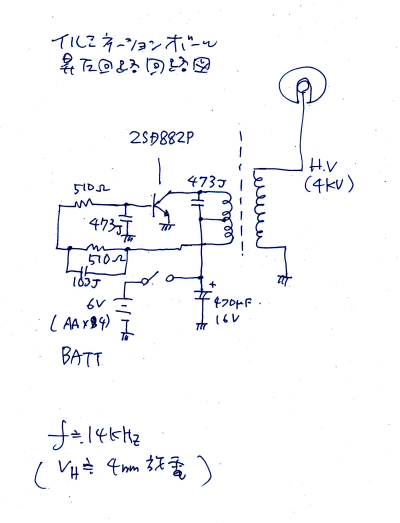 イルミネーションボール
昇圧回路
2SD882P
H.V
(4KV)
510Ω
473J
473J
510Ω
103J
6V
(AA×4)
BATT
+
470μF
16V
f≒14KHz
(VH≒4mm放電)